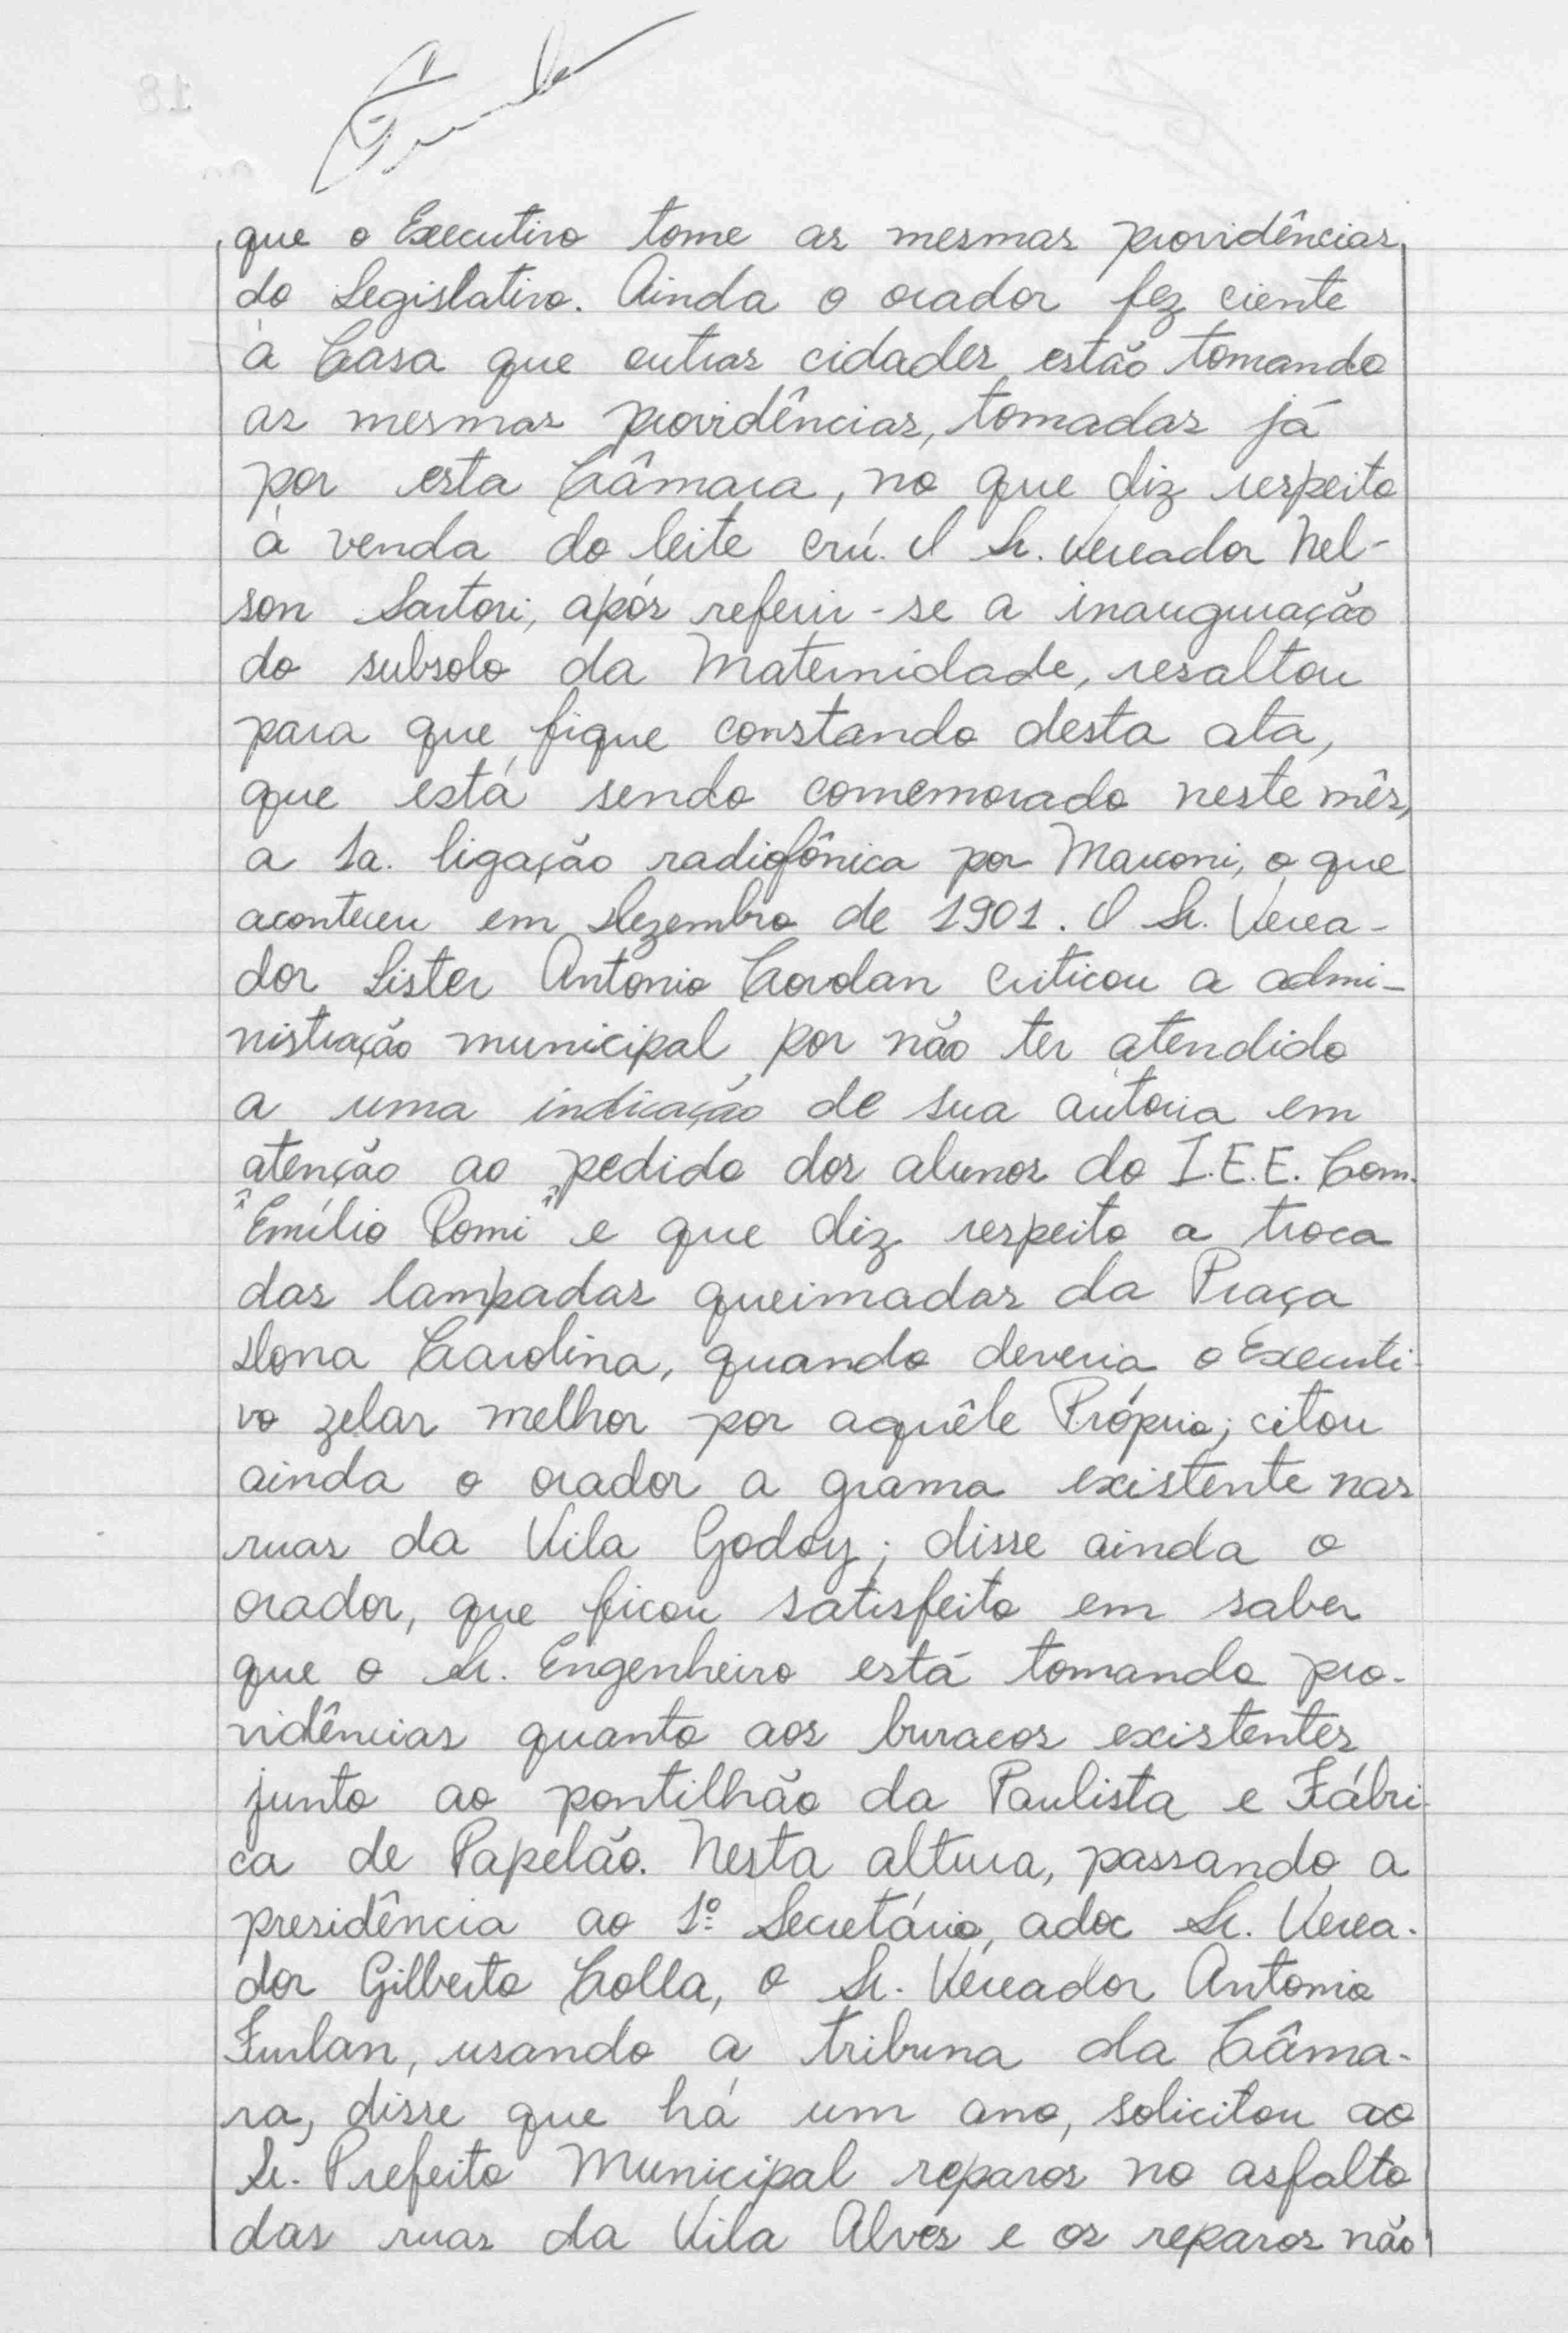 que o Executivo tome as mesmas providências
do Legislativo. Ainda o orador fez ciente
à Casa que outras cidades estão tomando
as mesmas providências, tomadas já
por esta Câmara, no que diz respeito
à venda do leite crú. O Sr. Vereador Nel-
son Sartori, após referir-se a inauguração
do subsolo da Maternidade, resaltou
para que fique constando desta ata,
que está sendo comemorado neste mês,
a 1a. ligação radiofônica por Marconi, o que
aconteceu em Dezembro de 1901. O Sr. Verea-
dor Lister Antonio Cordan criticou a admi-
nistração municipal por não ter atendido
a uma indicação de sua autoria em
atenção ao pedido dos alunos do I.E.E. Com.
"Emílio Romi" e que diz respeito a troca
das lampadas queimadas da Praça
Dona Carolina, quando deveria o Executi-
vo zelar melhor por aquêle Próprio; citou
ainda o orador a grama existente nas
ruas da Vila Godoy; disse ainda o
orador, que ficou satisfeito em saber
que o Sr. Engenheiro está tomando pro-
vidências quanto aos buracos existentes
junto ao pontilhão da Paulista e Fábri-
ca de Papelão. Nesta altura, passando a
presidência ao 1º Secretário, adoc Sr. Verea-
dor Gilberto Colla, o Sr. Vereador Antonio
Furlan, usando a tribuna da Câma-
ra, disse que há um ano, solicitou ao
Sr. Prefeito Municipal reparos no asfalto
das ruas da Vila Alves e os reparos não